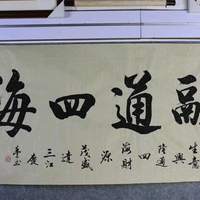 融通四海
生意
興
隆通
四
海財
源
茂盛
達
三江